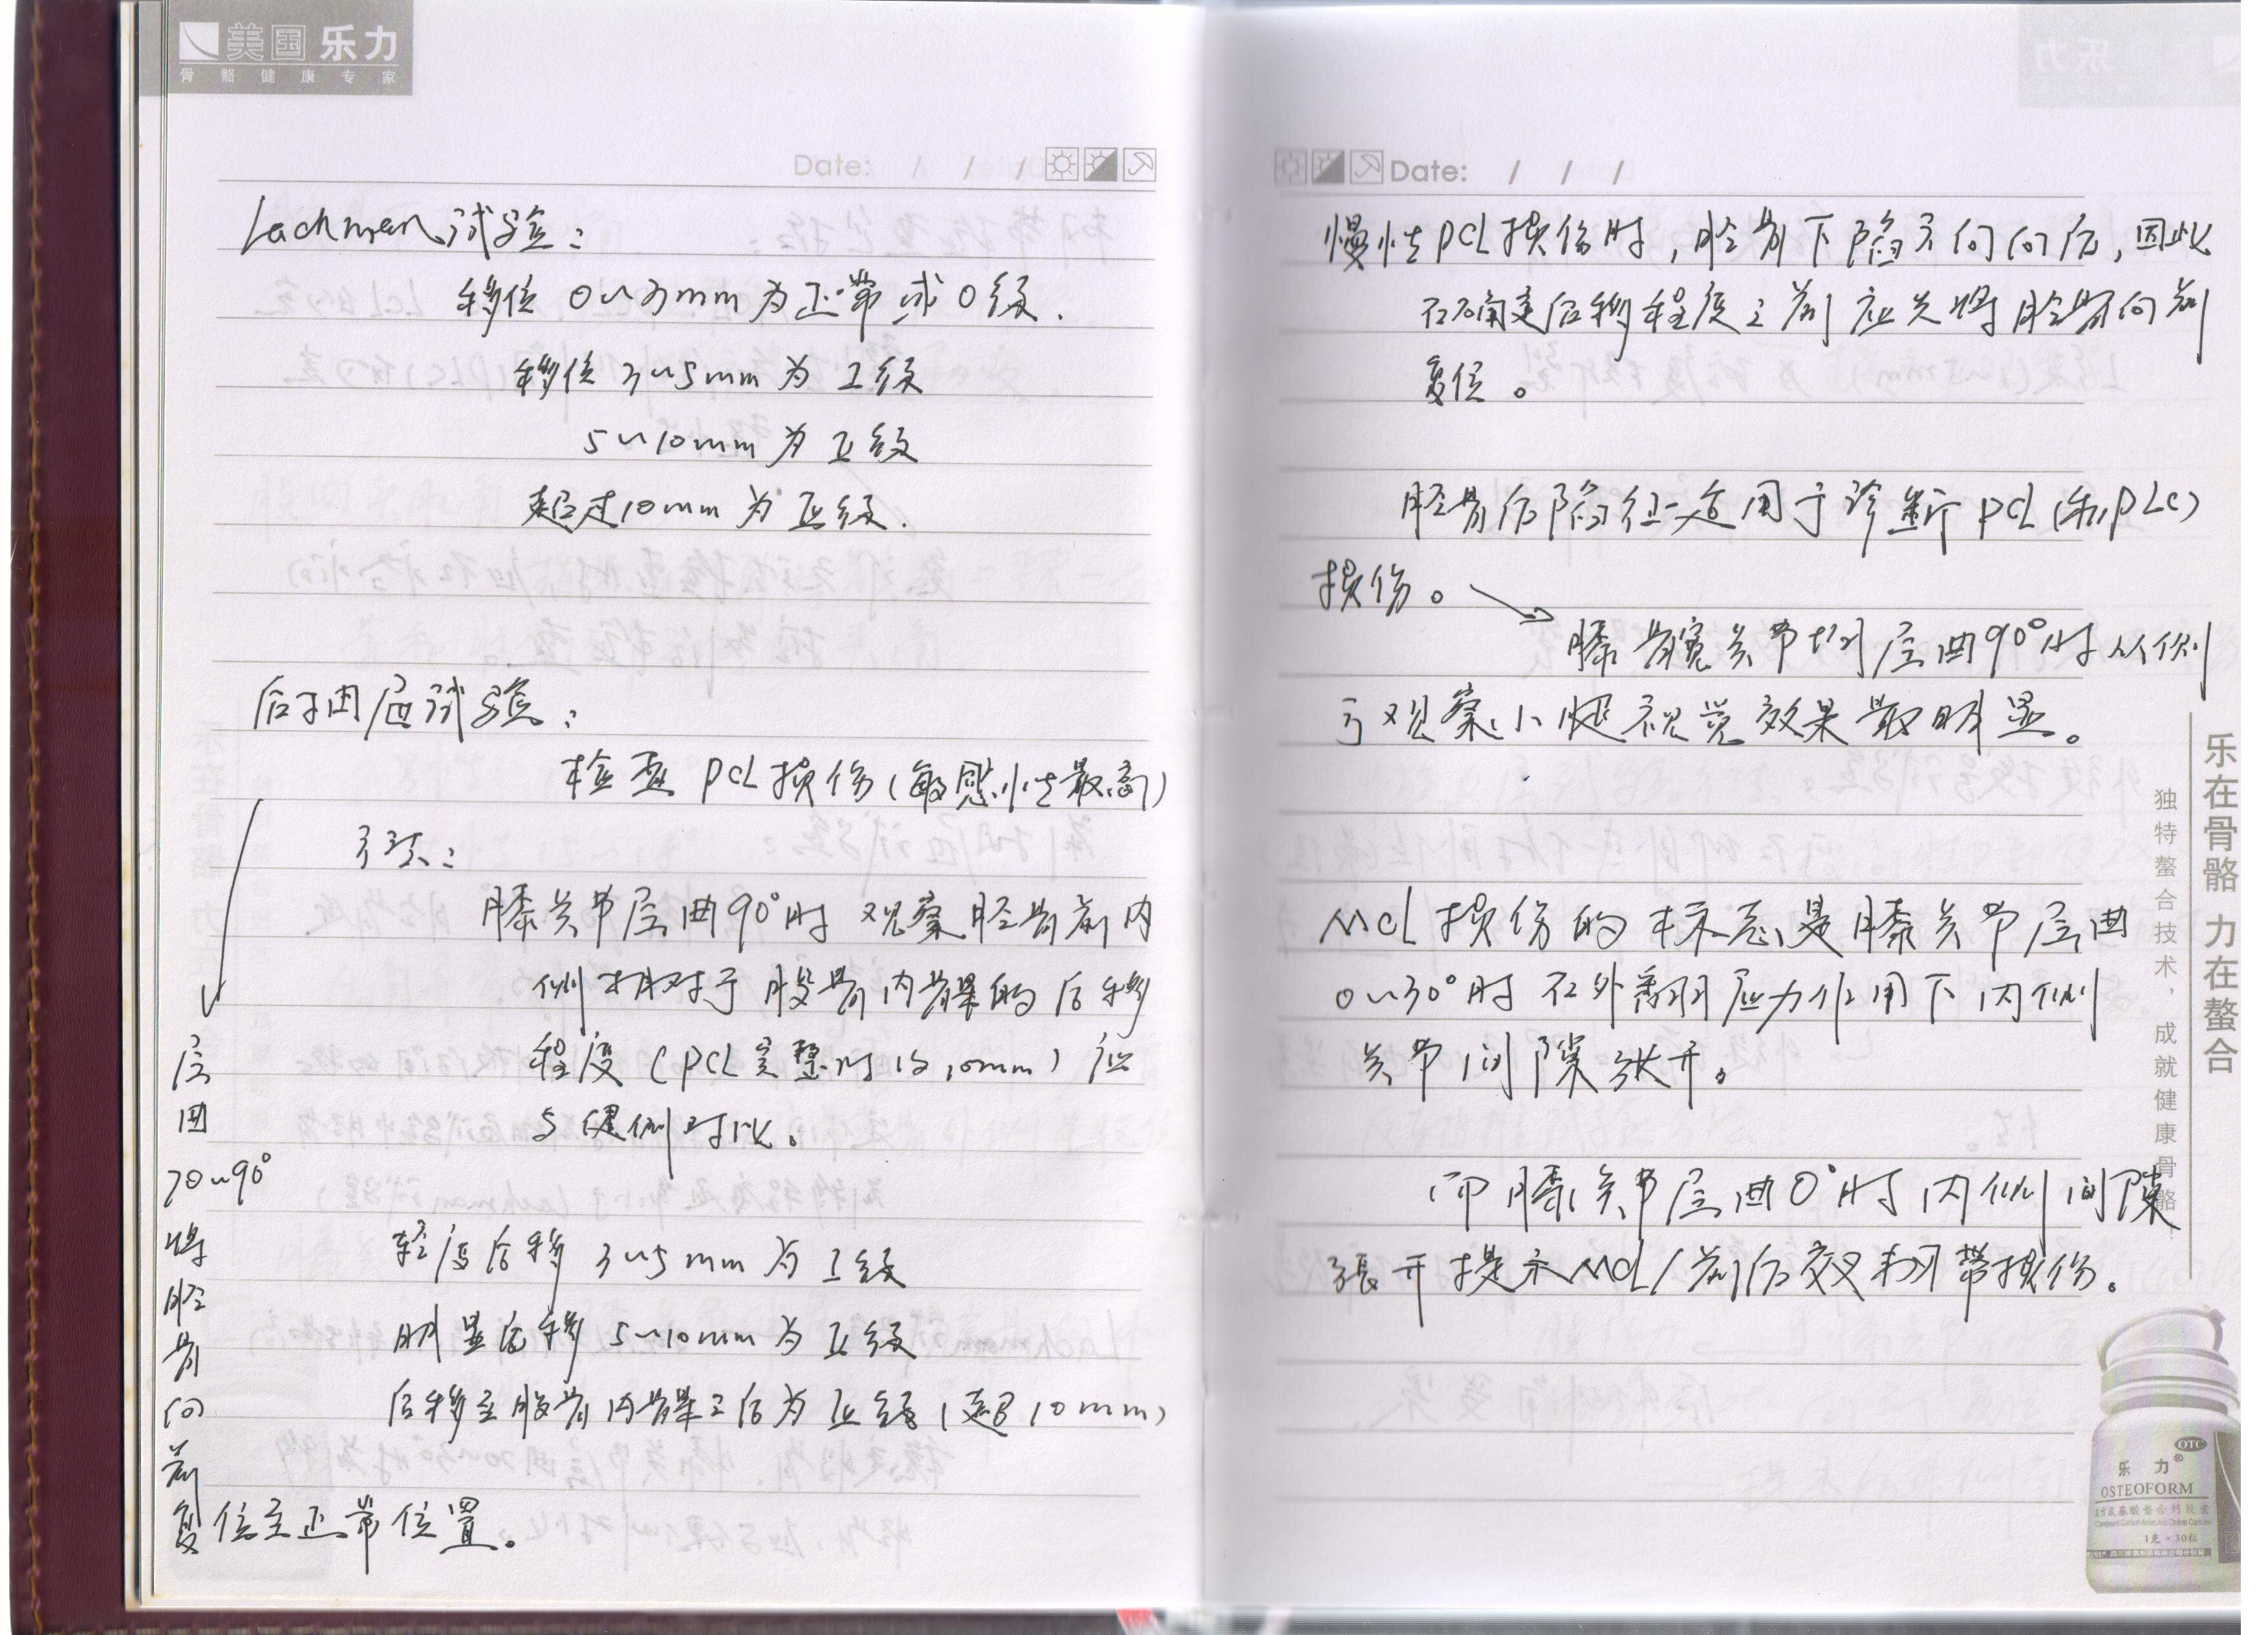 美国 乐力
骨骼健康专家
Date: / / /
Lachman试验：
移位 0~3mm 为正常或 0 级.
移位 3~5mm 为 I 级
5~10mm 为 II 级
超过10mm 为 III 级.
后抽屉试验：
检查 PCL 损伤(敏感性最高)
方法：
膝关节屈曲90°时 观察胫骨前内
侧相对于股骨内髁的后移
程度 (PCL完整时约10mm) 应
与健侧对比。
轻度后移 3~5mm 为 I 级
明显后移 5~10mm 为 II 级
后移至股骨内髁之后为 III 级 (超 10mm)
屈
曲
70~90°
将
胫
骨
向
前
复位至正常位置。
Date: / / /
慢性PCL损伤时,胫骨下陷方向向后,因此
在确定后移程度之前应先将胫骨向前
复位。
胫骨后陷征适用于诊断 PCL (和PLC)
损伤。
膝髋关节均屈曲90°时从侧
方观察小腿视觉效果最明显。
MCL 损伤的标志是膝关节屈曲
0~30°时 在外翻应力作用下内侧
关节间隙张开。
而膝关节屈曲0°时内侧间隙
張开提示MCL/前后交叉韧带损伤。
乐在骨骼 力在螯合
独特螯合技术，成就健康骨骼
OTC
乐力®
OSTEOFORM
复方氨基酸螯合钙胶囊
1克×30粒